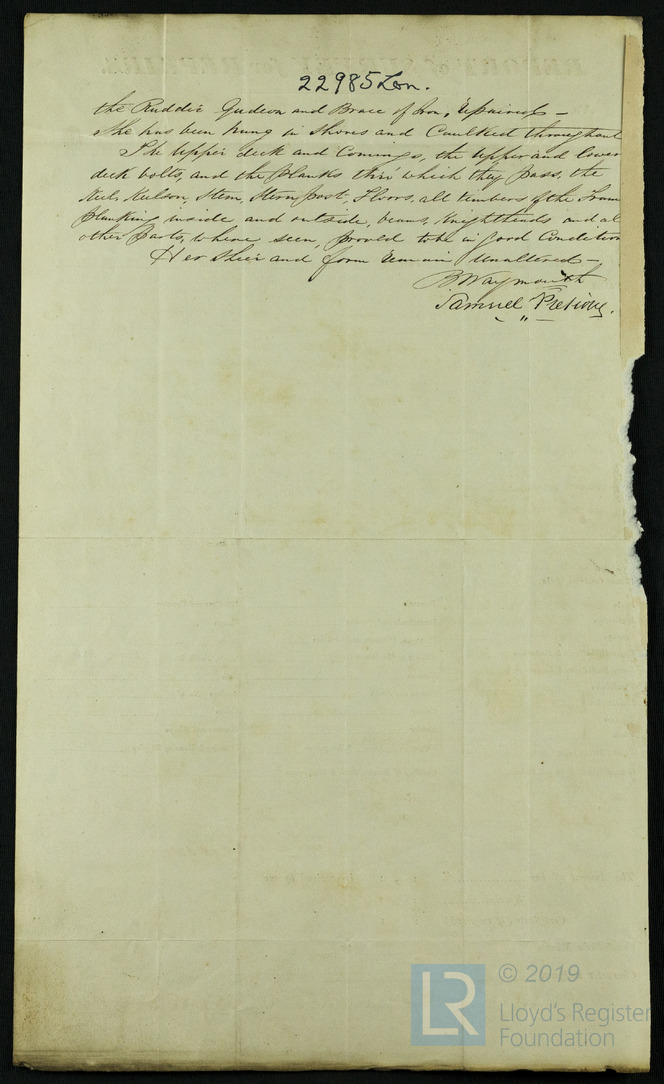 22985 Lon.
the Rudder Gudeon and Brace of Iron, repaired –
She has been hung in Shores and Caulked throughout
The Upper deck and Comings, the Upper and lower
deck bolts, and the planks thro' which they pass, the
Keel, Keelson, Stem, Stern post, Floors, all timbers of the Frame
planking inside and outside, beams, Knightheads and al
other Parts, where seen, proved to be in good Condition
Her Sheer and form remain Unaltered –
B Waymouth
Samuel
© 2019
LR
Lloyd's Register
Foundation